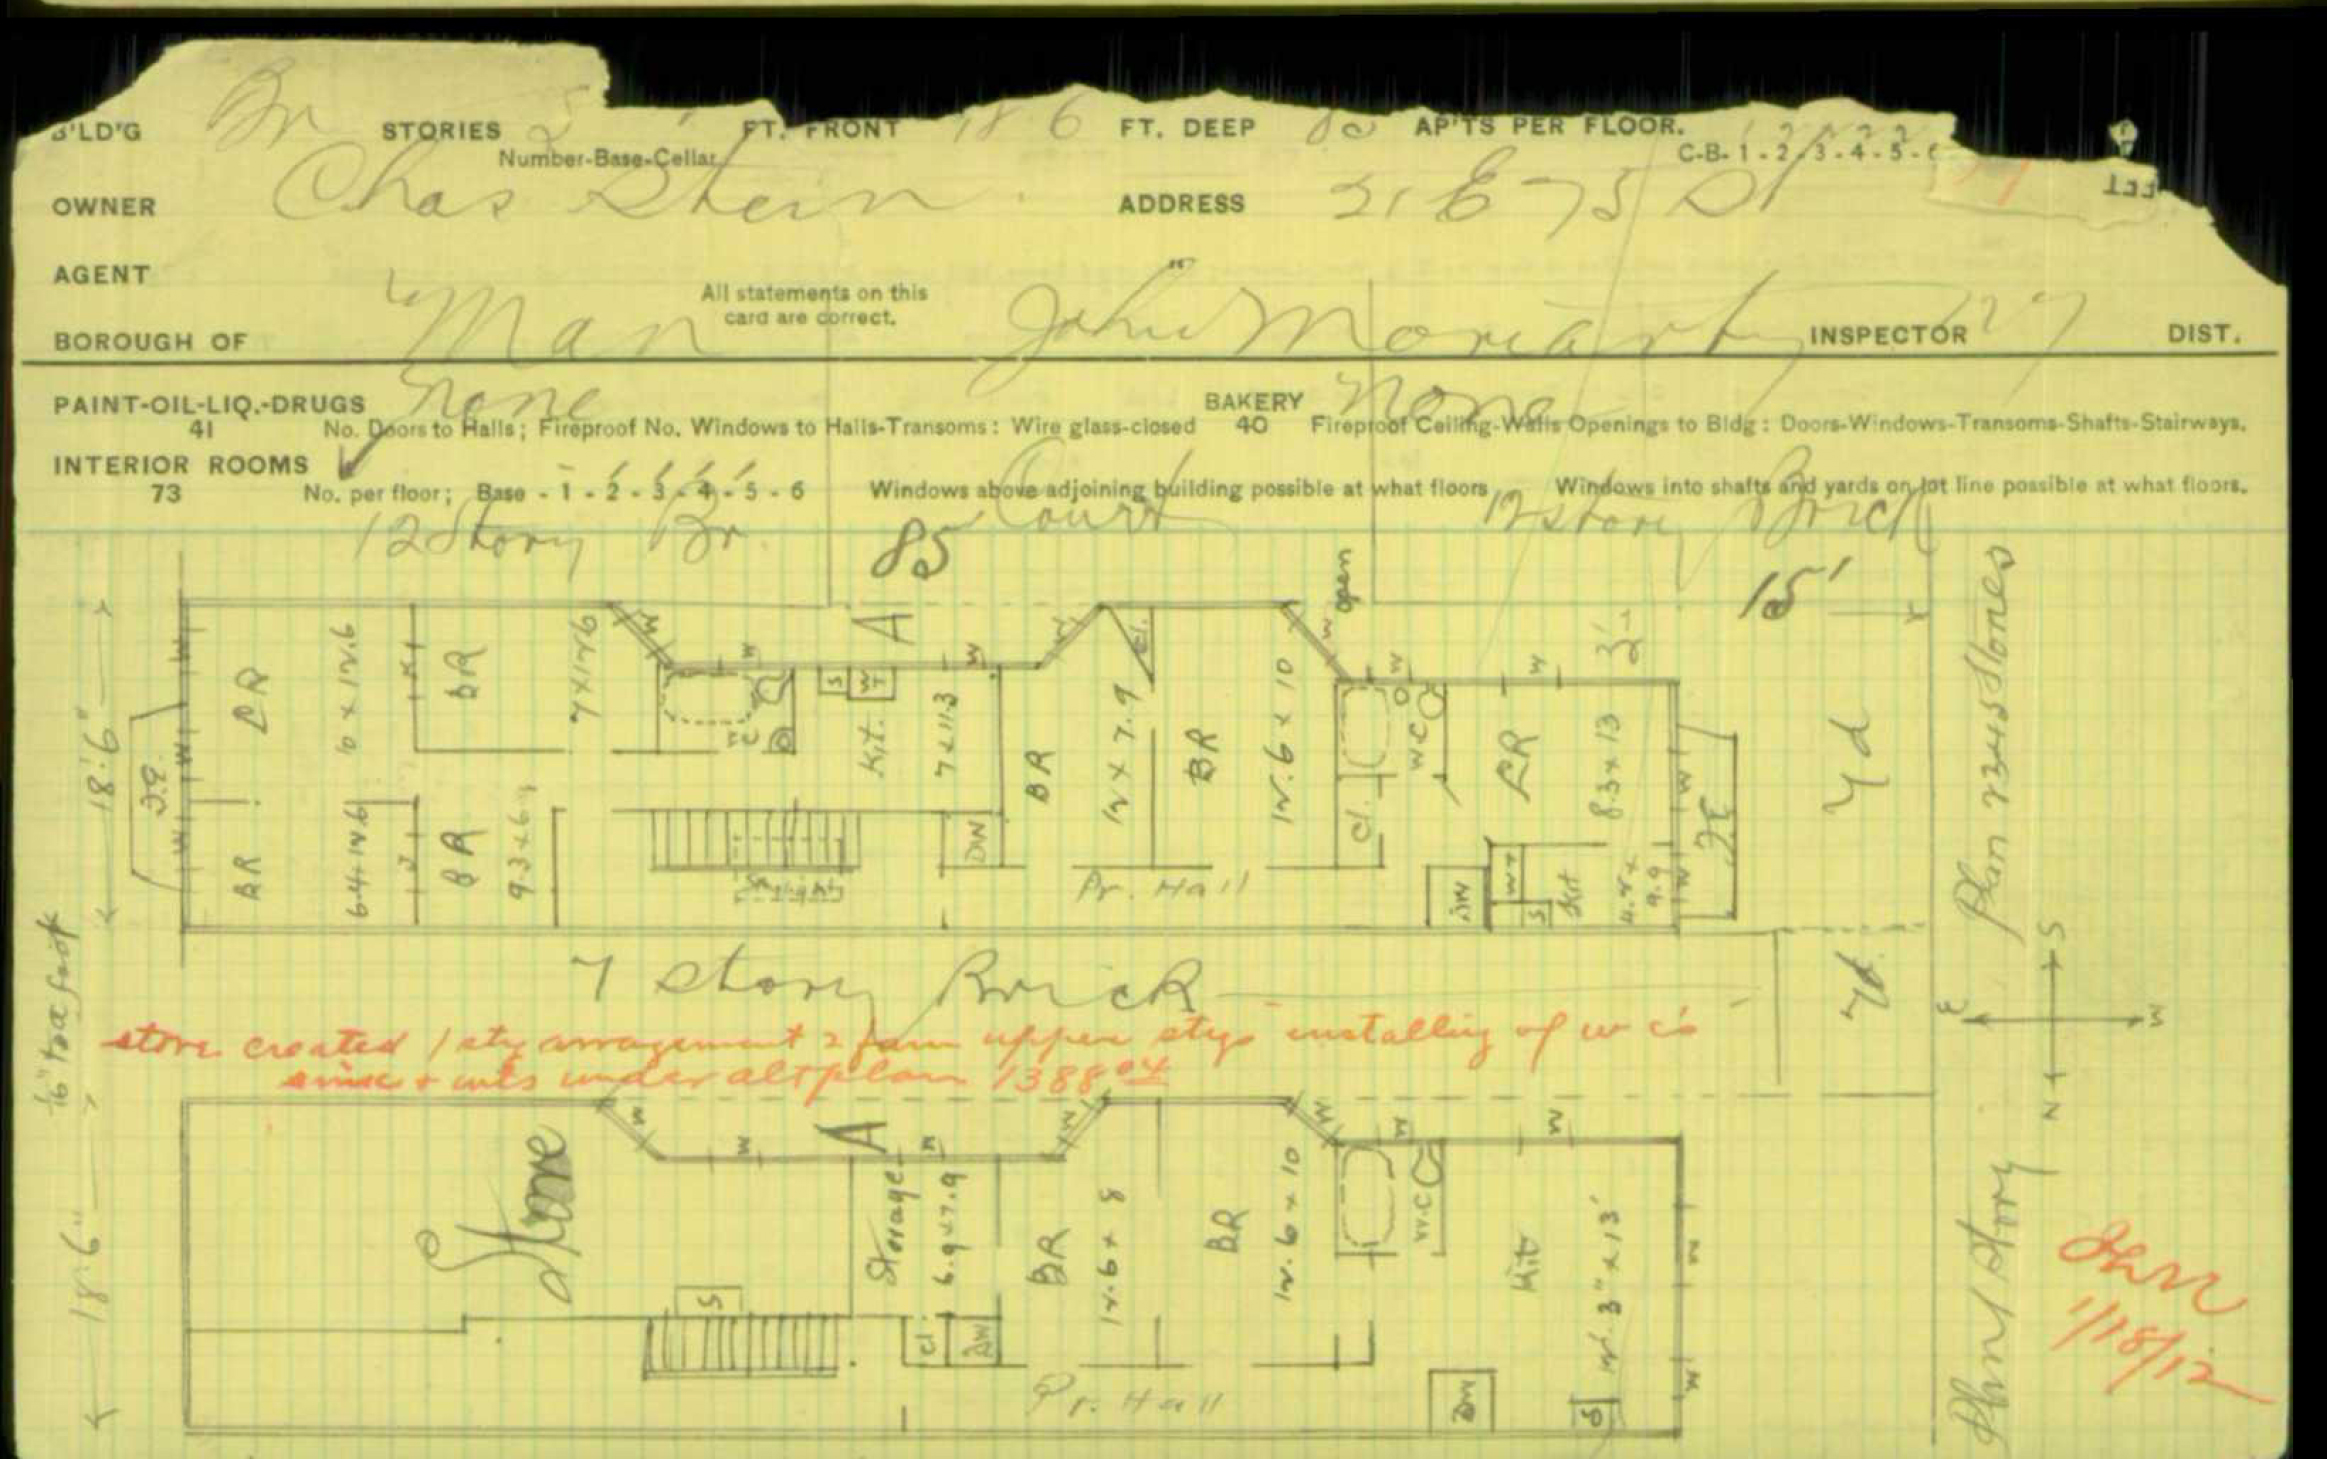 B'LD'G Br STORIES 5 FT. FRONT 18 6 FT. DEEP 80 AP'TS PER FLOOR.
Number-Base-Cellar C-B- 1 - 2 - 3 - 4 - 5 - 6
OWNER Chas Stein ADDRESS 21 E 75 St
AGENT
All statements on this
card are correct.
BOROUGH OF Man John Moriarty INSPECTOR 27 DIST.
PAINT-OIL-LIQ.-DRUGS none BAKERY none
41 No. Doors to Halls; Fireproof No. Windows to Halls-Transoms: Wire glass-closed 40 Fireproof Ceiling-Walls Openings to Bldg: Doors-Windows-Transoms-Shafts-Stairways.
INTERIOR ROOMS
73 No. per floor; Base - 1 - 2 - 3 - 4 - 5 - 6 Windows above adjoining building possible at what floors Windows into shafts and yards on lot line possible at what floors.
12 Story Br. 85 Court 12 story Brick
open
15'
18'6"
BR
6.4 x 12.6
BR
BR
9.3 x 6
A
S
WT
Kit.
7 x 11.3
DW
BR
12 x 7.9
Cl.
BR
12.6 x 10
Pr. Hall
Cl.
W.C
8.3 x 13
DW
WT
S
Kit
4.4 x
9.9
Yd
Yd
7 Story Brick
store created 1 sty arragement 2 fam upper stys installing of w c's
under alt plan 1388 04
18'6"
Store
S
A
Storage
6.9 x 7.9
Cl.
DW
BR
12.6 x 8
BR
12.6 x 10
Pr. Hall
W.C
Kit
12.3" x 13'
DW
S
Plan 2345 Stories
Plan 1 Story
N
S
E
W
1/18/12